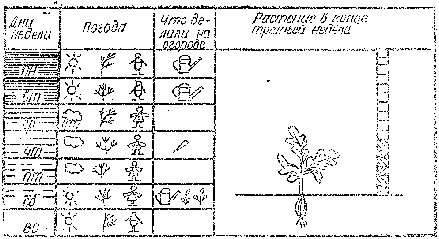 Дни
недели
Погода
Что де-
лали на
огороде
Растение в конце
третьей недели
пн
вт
ср
чт
пт
сб
вс